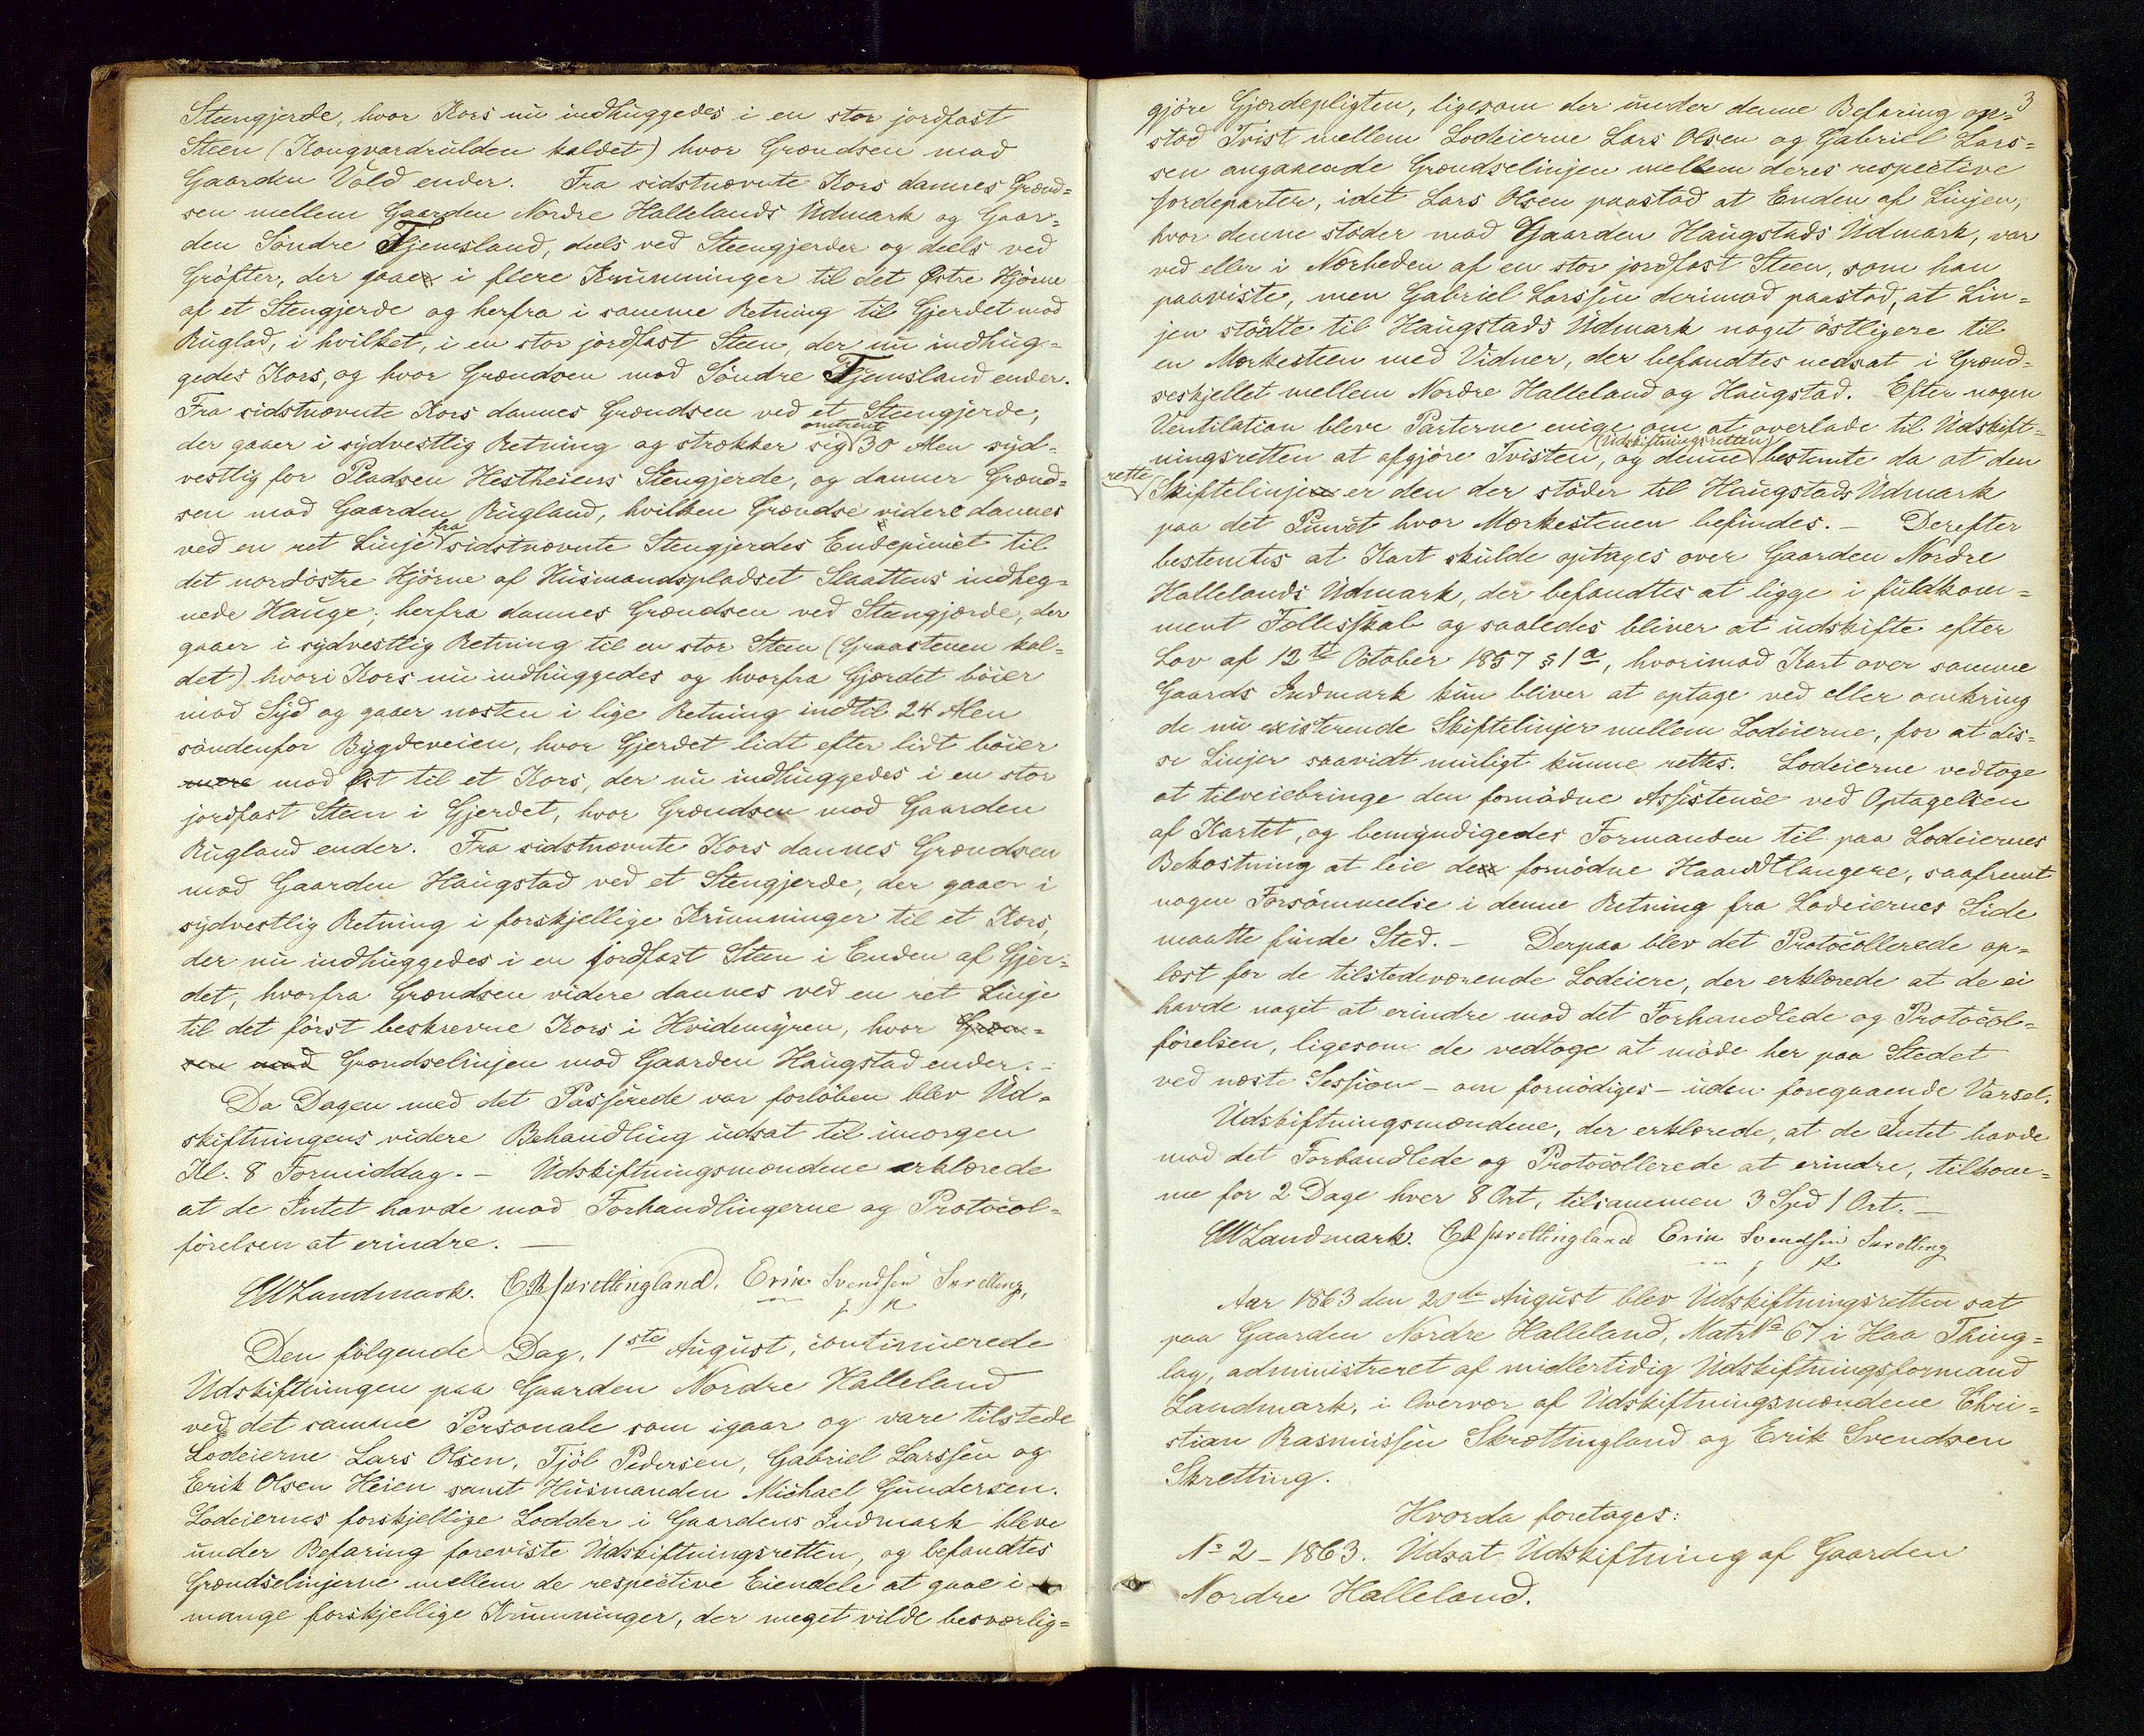 Steengjerde, hvor Kors nu indhuggedes i en stor jordfast
Steen (Kongvardrulden kaldet) hvor Grændsen mod
Gaarden Vold ender. Fra sidstnævnte Kors dannes Grænd=
sen mellem Gaarden Nordre Hallelands Udmark og Gaar=
den Söndre Tjemsland, deels ved Steengjerder og deels ved
Gröfter, der gaaer i flere Krumninger til det Østre Hjörne
af et Stengjerde og herfra i samme Retning til Gjerdet mod
Ruglad, i hvilket, i en stor jordfast Steen, der nu indhug=
gedes Kors, og hvor Grændsen mod Söndre Tjemsland ender.
Fra sidstnævnte Kors dannes Grændsen ved et Stengjerde,
der gaaer i sydvestlig Retning og strækker sig omtrent 30 Alen syd=
vestlig for Pladsen Hestheiens Stengjerde, og danner Grænd=
sen mod Gaarden Rugland, hvilken Grændse videre dannes
ved en ret Linje fra sidstnævnte Stengjerdes Endepunct til
det nordöstre Hjörne af Huusmandspladset Slaattens indheg=
nede Hauge; herfra dannes Grændsen ved Stengjærde, der
gaaer i sydvestlig Retning til en stor Steen (Graastenen kal=
det) hvori Kors nu indhuggedes og hvorfra Gjærdet böier
mod Syd og gaaer næsten i lige Retning indtil 24 Alen
söndenfor Bygdeveien, hvor Gjerdet lidt efter lidt böier
mere mod Øst til et Kors, der nu indhuggedes i en stor
jordfast Steen i Gjerdet, hvor Grændsen mod Gaarden
Rugland ender. Fra sidstnævnte Kors dannes Grændsen
mod Gaarden Haugstad ved et Stengjerde, der gaaer i
sydvestlig Retning i forskjellige Krumninger til et Kors,
der nu indhuggedes i en jordfast Steen i Enden af Gjer=
det, hvorfra Grændsen videre dannes ved en ret Linje
til det först beskrevne Kors i Hvidemyren, hvor Græn=
sen mod Grændselinjen mod Gaarden Haugstad ender. –
Da Dagen med det Passerede var forlöben blev Ud=
skiftningens videre Behandling udsat til imorgen
Kl. 8 Formiddag. – Udskiftningsmændene erklærede
at de Intet havde mod Forhandlingerne og Protocol=
förelsen at erindre. —
CWLandmark. CRSkrettingland. Erik Svendsen Skretting,
Den fölgende Dag, 1ste August, continuerede
Udskiftningen paa Gaarden Nordre Halleland
ved det samme Personale som igaar og vare tilstede
Lodeierne Lars Olsen, Tjöl Pedersen, Gabriel Larssen og
Erik Olsen Heien samt Huusmanden Michael Gundersen.
Lodeiernes forskjellige Lodder i Gaardens Indmark bleve
under Befaring foreviste Udskiftningsretten, og befandtes
Grændselinjerne mellem de respective Eiendele at gaae i
mange forskjellige Krumninger, der meget vilde besværlig=
3
gjöre Gjærdepligten, ligesom der under denne Befaring op=
stod Tvist mellem Lodeierne Lars Olsen og Gabriel Lars=
sen angaaende Grændselinjen mellem deres respective
Jordeparter, idet Lars Olsen paastod at Enden af Linjen,
hvor denne stöder mod Gaarden Haugstads Udmark, var
ved eller i Nærheden af en stor jordfast Steen, som han
paaviste, men Gabriel Larssen derimod paastod, at Lin=
jen stödte til Haugstads Udmark noget östligere til
en Mærkesteen med Vidner, der befandtes nedsat i Grænd=
seskjellet mellem Nordre Halleland og Haugstad. Efter nogen
Ventilation bleve Parterne enige om at overlade til Udskift=
ningsretten at afgjöre Tvisten, og denne (Udskiftningsretten) bestemte da at den
rette Skiftelinje er den der stöder til Haugstads Udmark
paa det Punct hvor Mærkestenen befindes. – Derefter
bestemtes at Kart skulde optages over Gaarden Nordre
Hallelands Udmark, der befandtes at ligge i fuldkom=
ment Fællesskab og saaledes bliver at udskifte efter
Lov af 12te October 1857 § 1a, hvorimod Kart over samme
Gaards Indmark kun bliver at optage ved eller omkring
de nu existerende Skiftelinjer mellem Lodeierne, for at dis=
se Linjer saavidt muligt kunne rettes. Lodeierne vedtoge
at tilveiebringe den fornödne Assistence ved Optagelsen
af Kartet, og bemyndigedes Formanden til paa Lodeiernes
Bekostning at leie de fornödne Haandtlangere, saafremt
nogen Forsömmelse i denne Retning fra Lodeiernes Side
maatte finde Sted. – Derpaa blev det Protocollerede op=
læst for de tilstedeværende Lodeiere, der erklærede at de ei
havde noget at erindre mod det Forhandlede og Protocol=
förelsen, ligesom de vedtoge at möde her paa Stedet
ved næste Session – om fornödiges – uden foregaaende Varsel.
Udskiftningsmændene, der erklærede, at de Intet havde
mod det Forhandlede og Protocollerede at erindre, tilkom=
me for 2 Dage hver 8 Ort, tilsammen 3 Spd 1 Ort. —
CWLandmark. CRSkrettingland Erik Svendsen Skretting
Aar 1863 den 20de August blev Udskiftningsretten sat
paa Gaarden Nordre Halleland, Matr No 67 i Haa Thing=
lag, administreret af midlertidig Udskiftningsformand
Landmark, i Overvær af Udskiftningsmændene Chri=
stian Rasmussen Skrettingland og Erik Svendsen
Skretting.
Hvorda foretages:
No 2 – 1863. Udsat Udskiftning af Gaarden
Nordre Halleland.